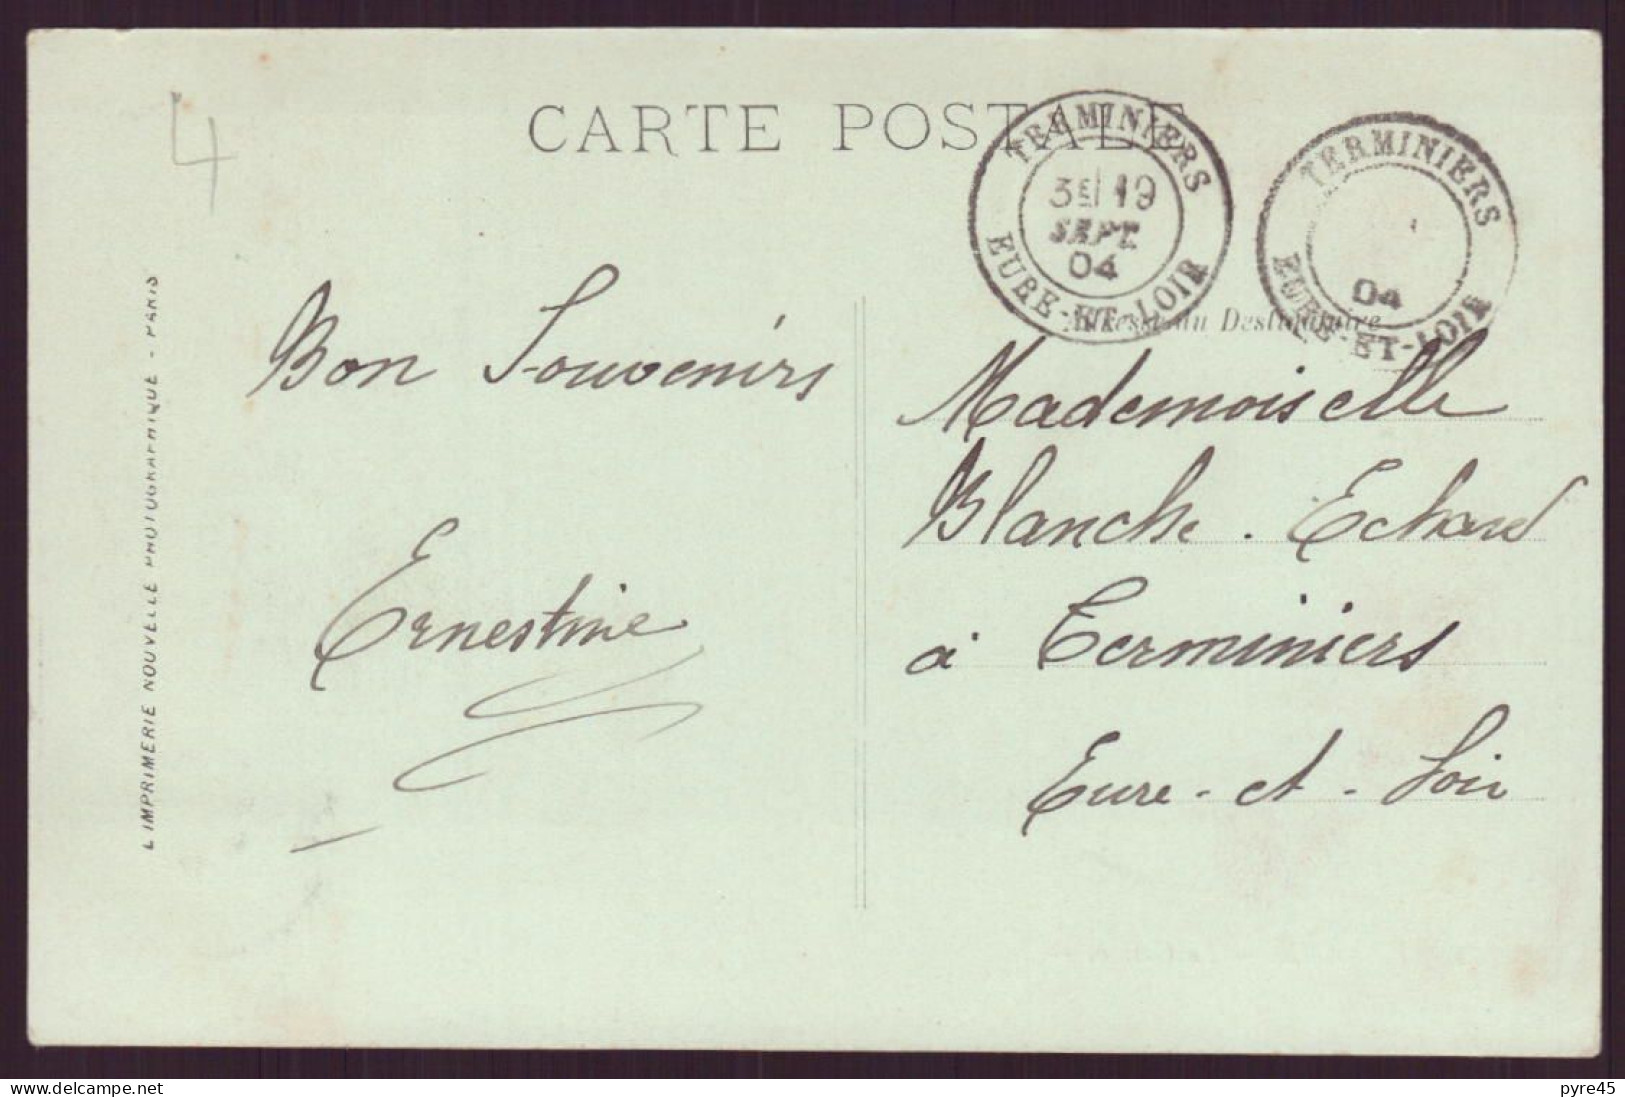 CARTE POSTALE
TERMINIERS
3E 19
SEPT.
04
EURE-ET-LOIR
TERMINIERS
04
EURE-ET-LOIR
Adresse du Destinataire
4
L'IMPRIMERIE NOUVELLE PHOTOGRAPHIQUE - PARIS
Bon Souvenirs
Ernestine
Mademoiselle
Blanche. Echard
à Terminiers
Eure-et-Loir
www.delcampe.net
pyre45